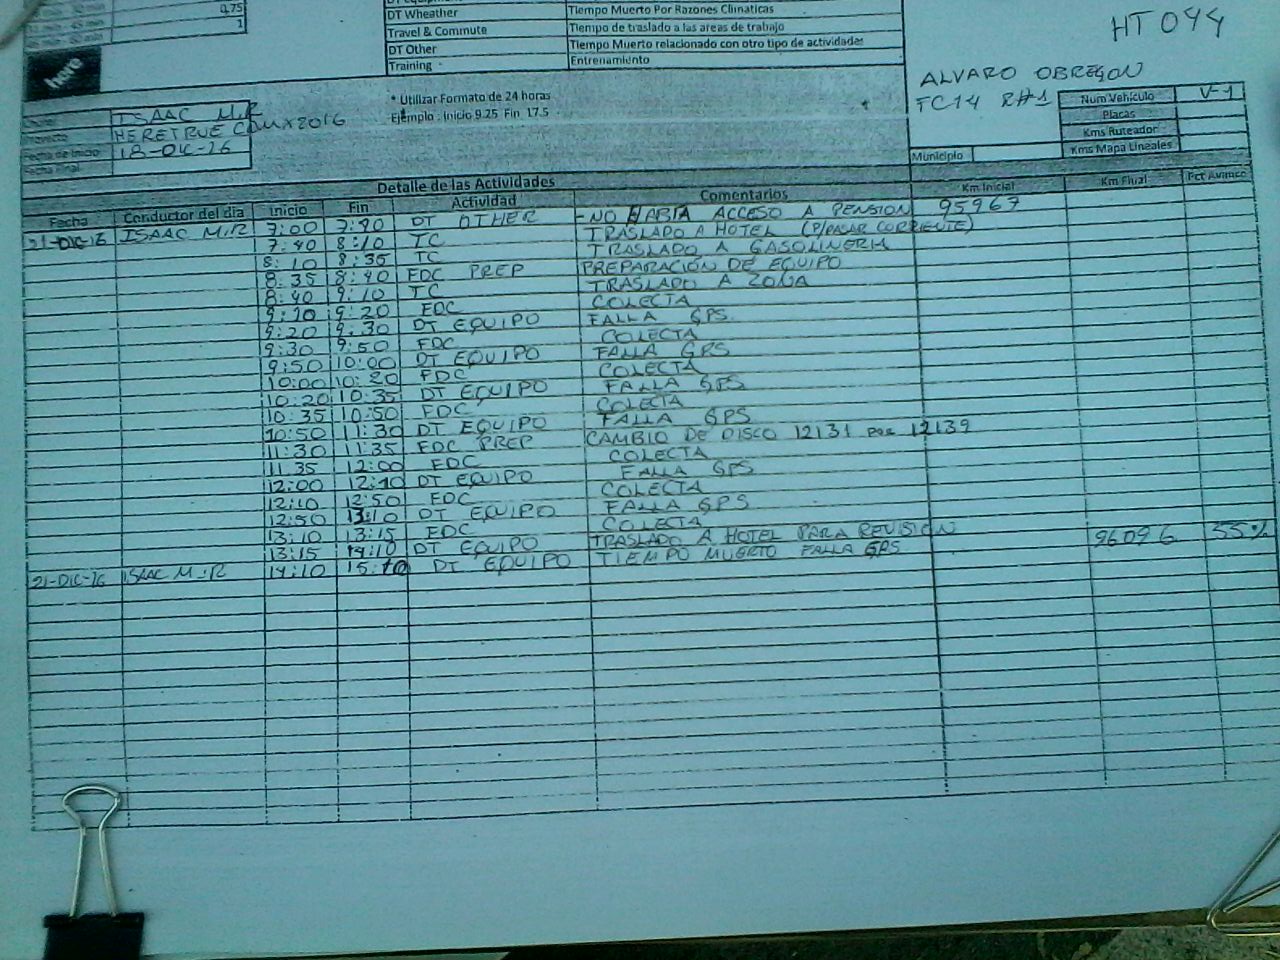 0,75
1
DT Wheather Tiempo Muerto Por Razones Climaticas
Travel & Commute Tiempo de traslado a las areas de trabajo
DT Other Tiempo Muerto relacionado con otro tipo de actividades
Training Entrenamiento
here
HT044
ALVARO OBREGON
TC14 RH1
* Utilizar Formato de 24 horas
Ejemplo : Inicio 9.25 Fin 17.5
ISAAC M.R
HERETRUE CDMX2016
Fecha de Inicio 18-DIC-16
Fecha Final
Num Vehículo V-1
Placas
Kms Ruteador
Kms Mapa Lineales
Municipio
Detalle de las Actividades
Fecha Conductor del día Inicio Fin Actividad Comentarios Km Inicial Km Final Pct Avance
21-DIC-16 ISAAC M.R 7:00 7:40 DT OTHER -NO HABIA ACCESO A PENSION 95967
7:40 8:10 TC TRASLADO A HOTEL (P/PASAR CORRIENTE)
8:10 8:35 TC TRASLADO A GASOLINERIA
8:35 8:40 FDC PREP PREPARACIÓN DE EQUIPO
8:40 9:10 TC TRASLADO A ZONA
9:10 9:20 FDC COLECTA
9:20 9:30 DT EQUIPO FALLA GPS
9:30 9:50 FDC COLECTA
9:50 10:00 DT EQUIPO FALLA GPS
10:00 10:20 FDC COLECTA
10:20 10:35 DT EQUIPO FALLA GPS
10:35 10:50 FDC COLECTA
10:50 11:30 DT EQUIPO FALLA GPS
11:30 11:35 FDC PREP CAMBIO DE DISCO 12131 POR 12139
11:35 12:00 FDC COLECTA
12:00 12:10 DT EQUIPO FALLA GPS
12:10 12:50 FDC COLECTA
12:50 13:10 DT EQUIPO FALLA GPS
13:10 13:15 FDC COLECTA
13:15 14:10 DT EQUIPO TRASLADO A HOTEL PARA REVISION
21-DIC-16 ISAAC M.R 14:10 15:10 DT EQUIPO TIEMPO MUERTO FALLA GPS 96096 55%